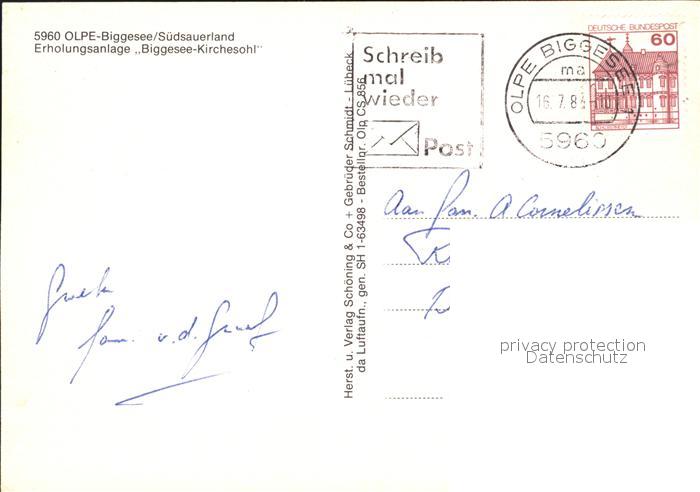 5960 OLPE-Biggesee/Südsauerland
Erholungsanlage „Biggesee-Kirchesohl"
Schreib
mal
wieder
Post
OLPE BIGGESEE 1
ma
16.7.8
5960
DEUTSCHE BUNDESPOST
60
Herst. u. Verlag Schöning & Co + Gebrüder Schmidt - Lübeck
da Luftaufn., gen. SH 1-63498 - Bestellnr. Olp CS 856
Aan Fam. A Cornelissen
fam. v.d.
privacy protection
Datenschutz